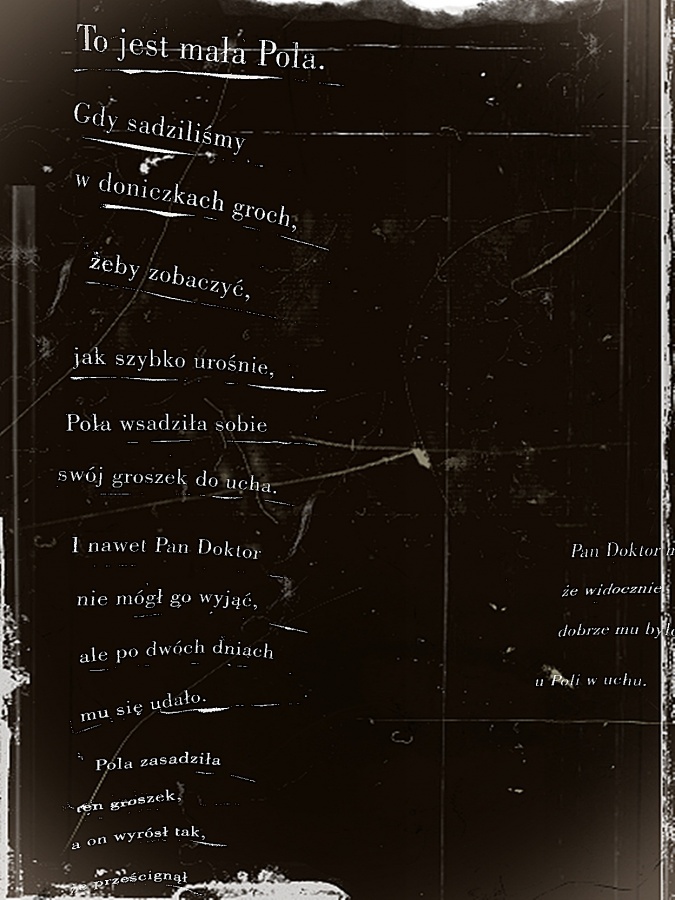 To jest mała Pola.
Gdy sadziliśmy
w doniczkach groch,
żeby zobaczyć,
jak szybko urośnie,
Pola wsadziła sobie
swój groszek do ucha.
I nawet Pan Doktor
nie mógł go wyjąć,
ale po dwóch dniach
mu się udało.
Pola zasadziła
ten groszek,
a on wyrósł tak,
że prześcignął
Pan Doktor
że widocznie
dobrze mu było
u Poli w uchu.